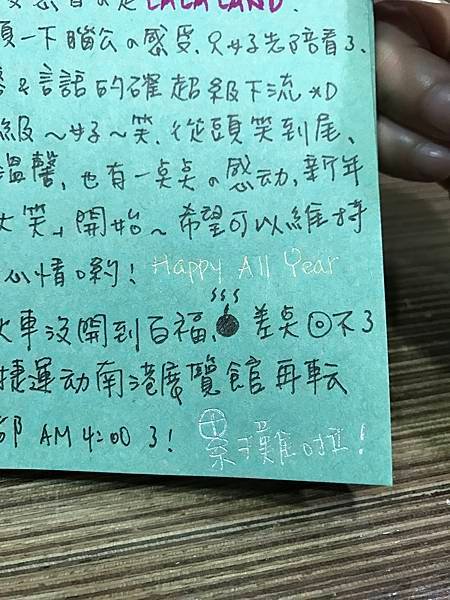 是 LALA LAND.
一下腦公の感受.只好先陪看3.
& 言話的確超級下流 xD
級～好～笑.從頭笑到尾、
溫馨,也有一奌奌の感动,新年
大笑」開始～希望可以維持
心情喲! Happy All Year
火車沒開到百福、差奌回不3
捷運动南港展覽館再転
AM 4:00 3! 累灘啦!